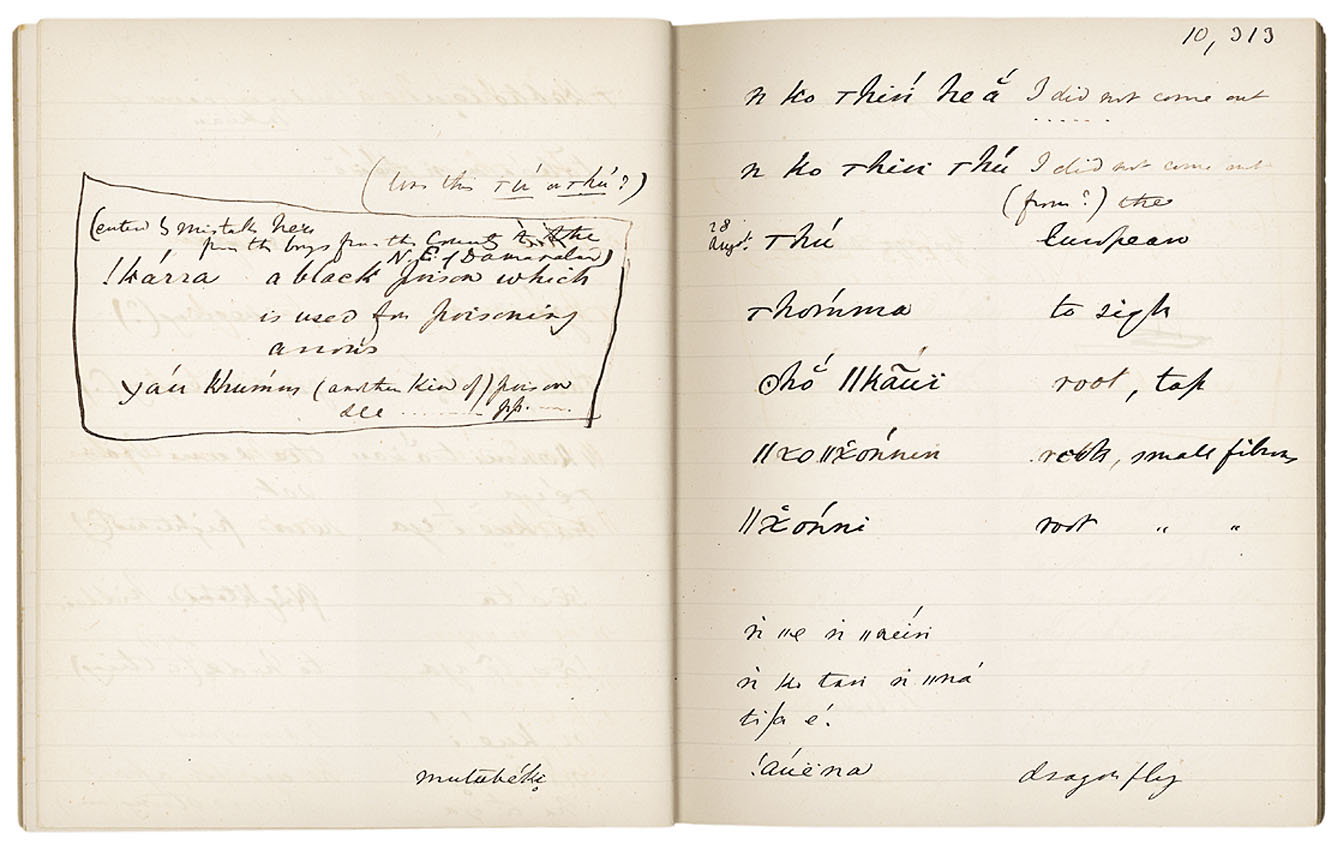 (was this Tú or Thú?)
(entered by mistake here
from the boys from the Country to the
N.E. of Damaraland)
!kárra a black poison which
is used for poisoning
arrows
yáu khúmm (another kind of) poison
see ............ pp. ......
mutubéke
10,313
n ko Thiń heǎ́ I did not come out
n ko Thin Thú I did not come out
(from?) the
28 Augst. Thú European
Thomma to sigh
ʘhǒ ǁkãũi root, tap
roots, small fibrous
ǁx̌oń́ni root " "
ti/a é.
!aúëna dragon fly